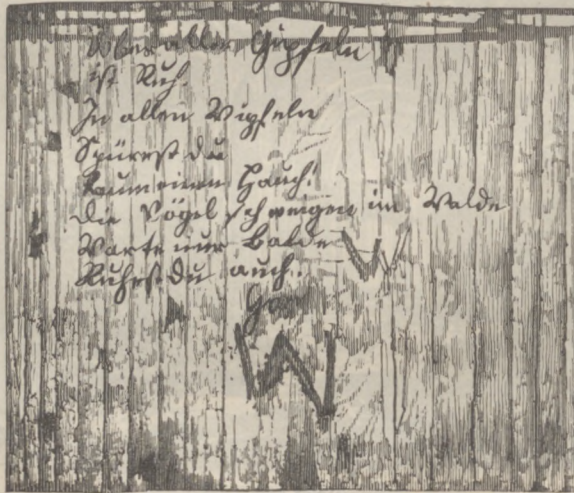 Über allen Gipfeln
ist Ruh.
In allen Wipfeln
Spürest du
Kaum einen Hauch!
die Vögel schweigen im Walde
Warte nur Balde W
Ruhest du auch.
W